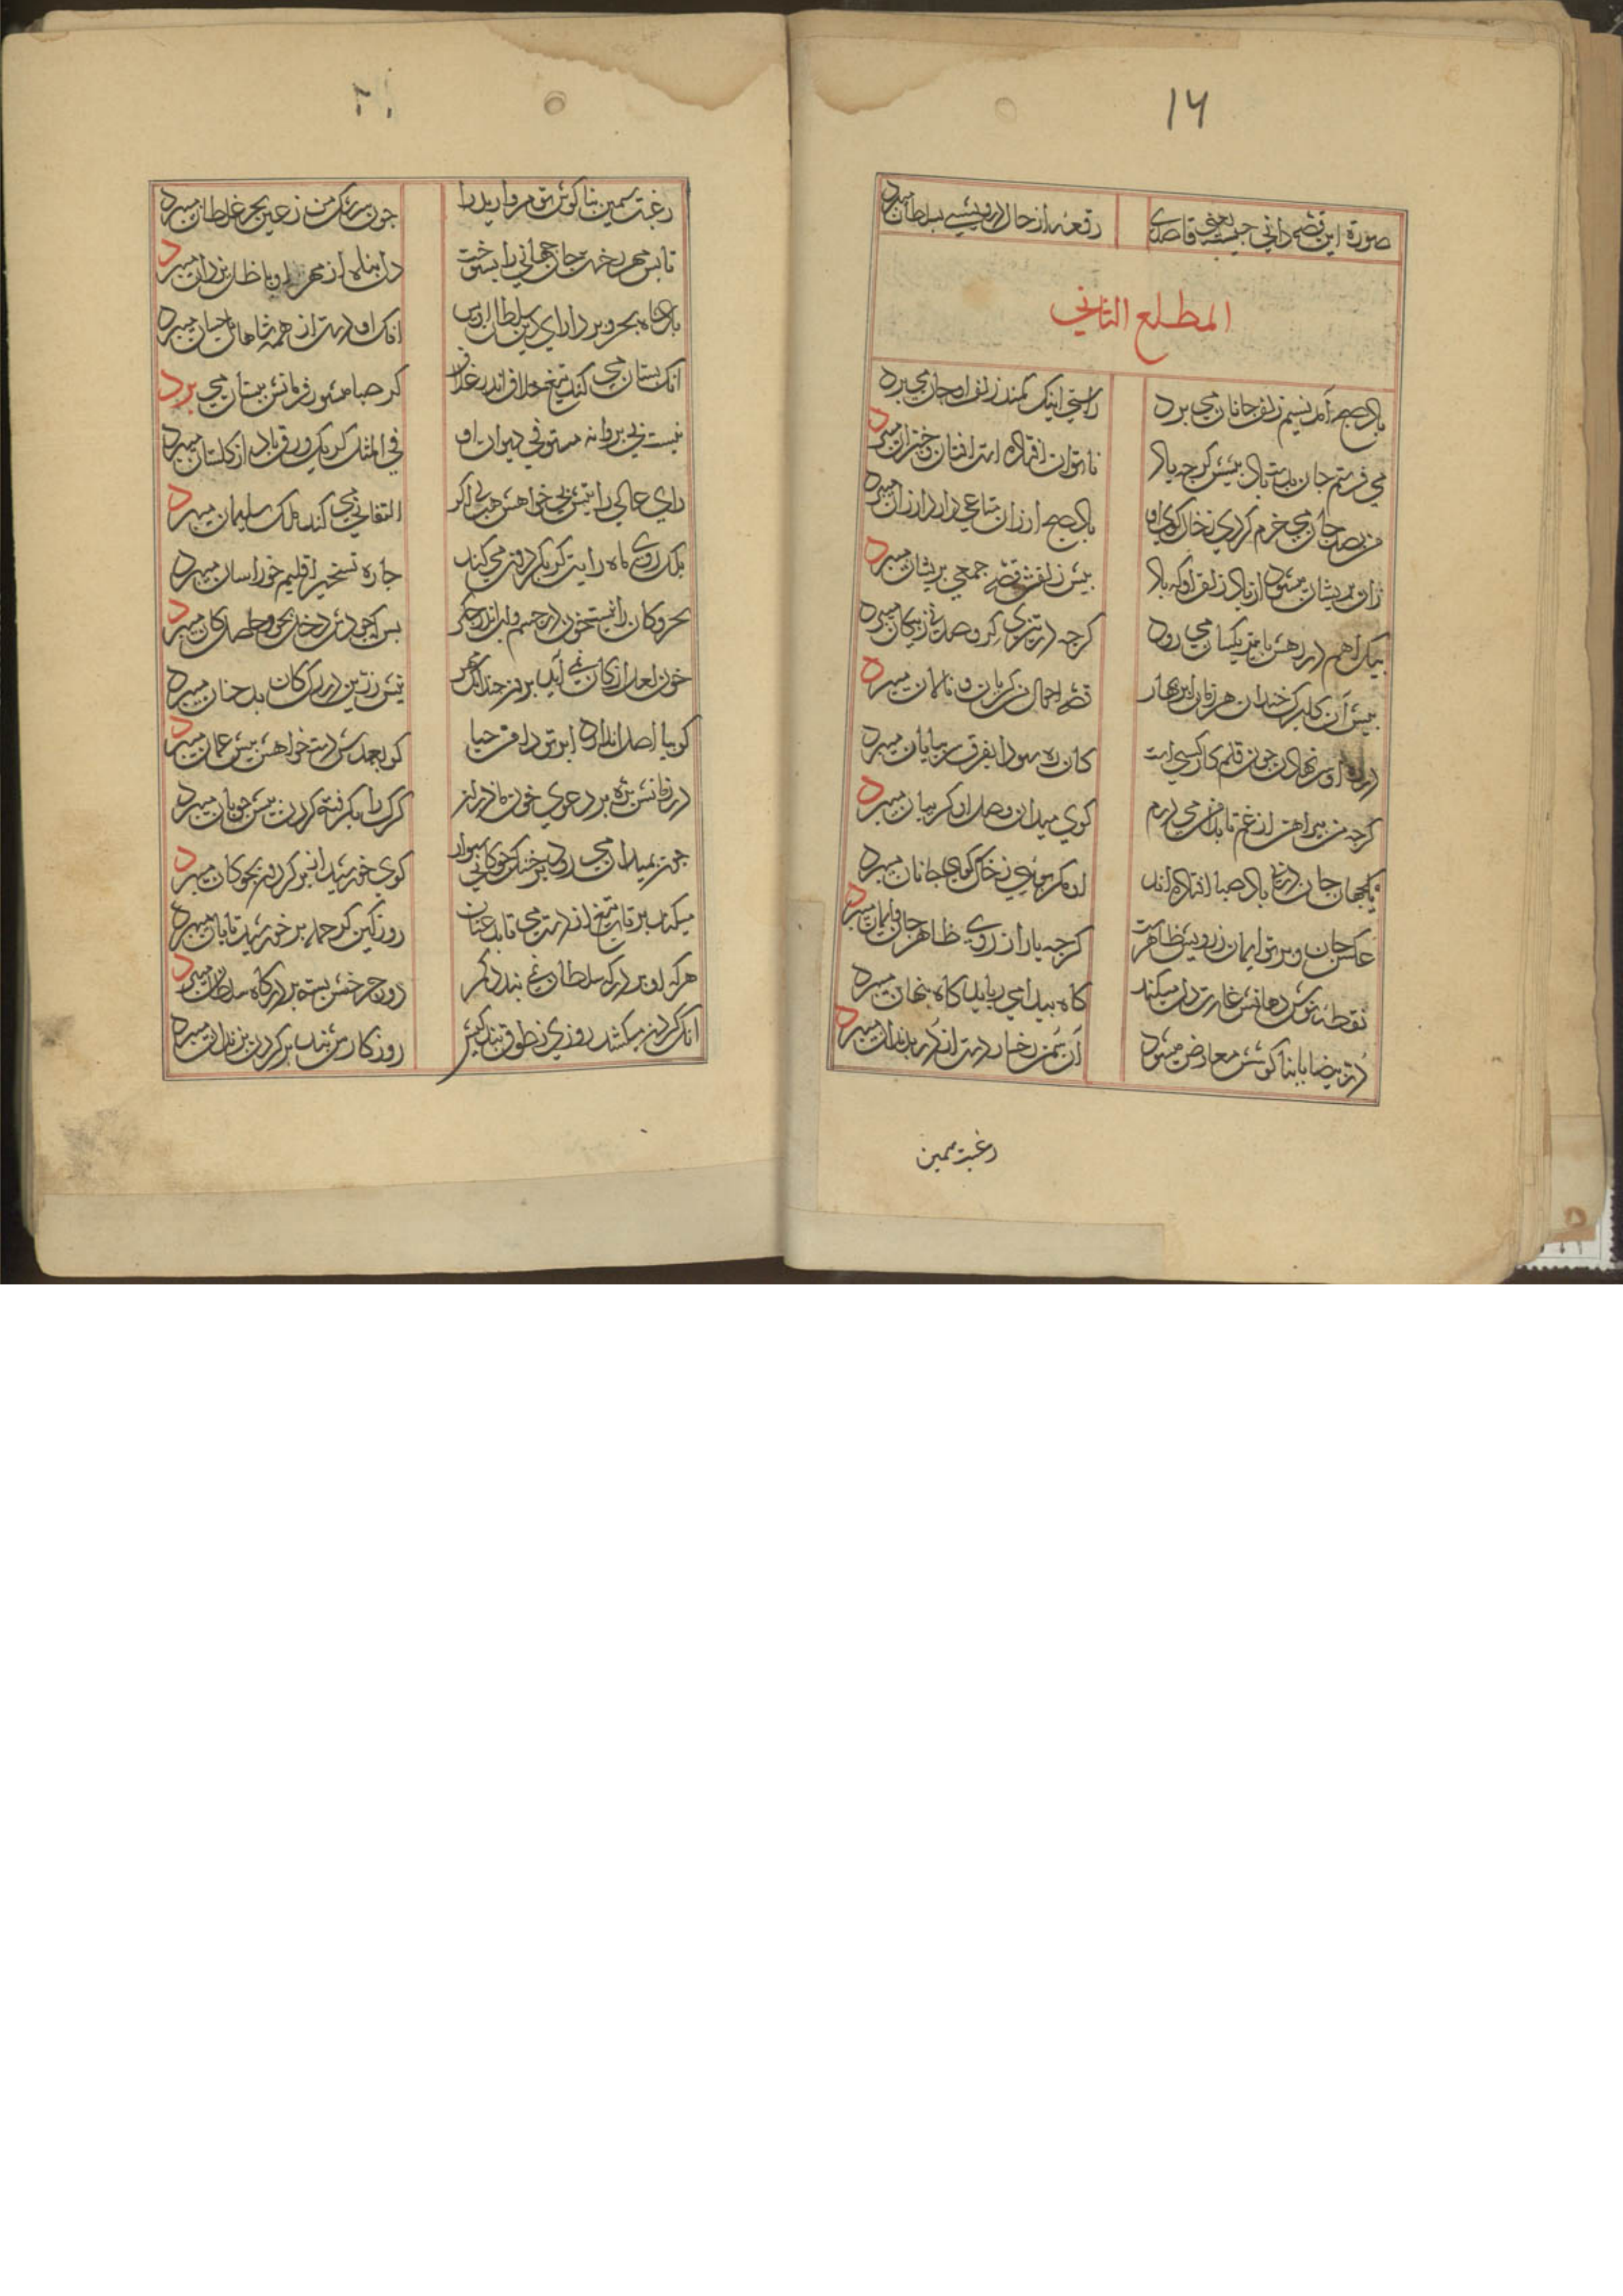 ١٦
صورة این قصه دانی چیست یعنی قاصدی
رقعه از حال درویشی بسلطان میبرد
المطلع الثاني
باد صبح آمد نسیم زلف جانان می برد
راستی اینک کمند زلف او جان می برد
می فرستم جان بدست باد پیشش گرچه باد
ناتوان افتاده است افتان و خیزان میبرد
من بصد جان می خرم گردی ز خاک کوی او
باد صبح ارزان متاعی دارد ارزان میبرد
زان پریشان میشود از باد زلف او که باد
پیش زلفش قصه جمعی پریشان میبرد
پیک راهم در رهش با میرود
گرچه در تیزی گرو صد پی ز پیکان میبرد
پیش آن گلبرگ خندان هر زمان ابر بهار
قصه احوال من گریان و نالان میبرد
در ره او سر نهادن چون قلم کار کسی است
کان ره سودا بفرق سر بپایان میبرد
گرچه من پیراهن از غم تا بدامن می درم
گوی میدان وصل او گریبان میبرد
یکجهان جان در پی باد صبا افتاده اند
او مگر بویی ز خاک کوی جانان میبرد
عاکس جان و پرتو ایمان ز رویش ظاهرست
گرچه یار از روی ظاهر جان و ایمان میبرد
نقطه نوش دهانش غارت دل میکند
گاه پیدا می رباید گاه پنهان میبرد
در بیضا با بناگوشش معارض میشود
آن بمن رخسار دست از در دندان میبرد
رغبت سمین
رغبت سیمین بناگوش تو مروارید را
چون سرشک من ز عین بحر غلطان میبرد
تابش مهر رخت جان جهانی را بسوخت
دل پناه از مهر او با ظل یزدان میبرد
پادشاه بحر و بر دارای دین سلطان اویس
آنک او دست از همه شاهان باحسان میبرد
آنک بستان می کند تیغ خلاف اندر غلاف
گر صبا منشور فرمانش ببستان می برد
نیست بی پروانه مستوفی دیوان او
فی المثل گر یک ورق باد از گلستان میبرد
رای عالی رایتش بی خواهش هب لی اگر
التفاتی می کند ملک سلیمان میبرد
بلک روی ماه رایت گر بگردون می کند
چاره تسخیر اقلیم خراسان میبرد
بحر و کان را نیست خون در جسم و آب اندر جگر
بس که جودش دخل بحر و حاصل کان میبرد
خون لعل از کان نمی آید برون چندانک مهر
تیش زرین در رگ کان بدخشان میبرد
گوییا اصلا ندارد ابر تو دامن حیا
کو بعهدش دست خواهش پیش عمان میبرد
در زمانش بره بر دعوی خون مادر بز
گرگ را بگرفته گردن پیش چوپان میبرد
چون بمیدان می رود بر خنک چوگانی سوار
گوی خورشید از بر گردون بچوگان میبرد
میکند بر قلب تیغ از دست می تابد عنان
روز کین گر حمله بر خورشید تابان میبرد
هرکه او بر درگه سلطان نمی بندد کمر
دور چرخش بسته بر درگاه سلطان میبرد
آنک گردن میکشد روزی ز طوق بندگیش
روزگارش بند بر گردن بزندان میبرد